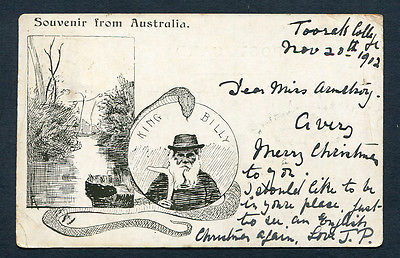 Souvenir from Australia.
KING BILLY
Toorak Colleg
Nov 20th 1902
Dear Miss Armstrong.
A very
Merry Christmas
to you.
I should like to be
in your place, just
to see an English
Christmas again, Love J.P.